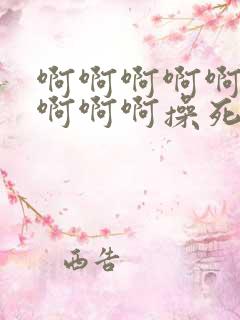 啊啊啊啊啊
啊啊啊操死
西告